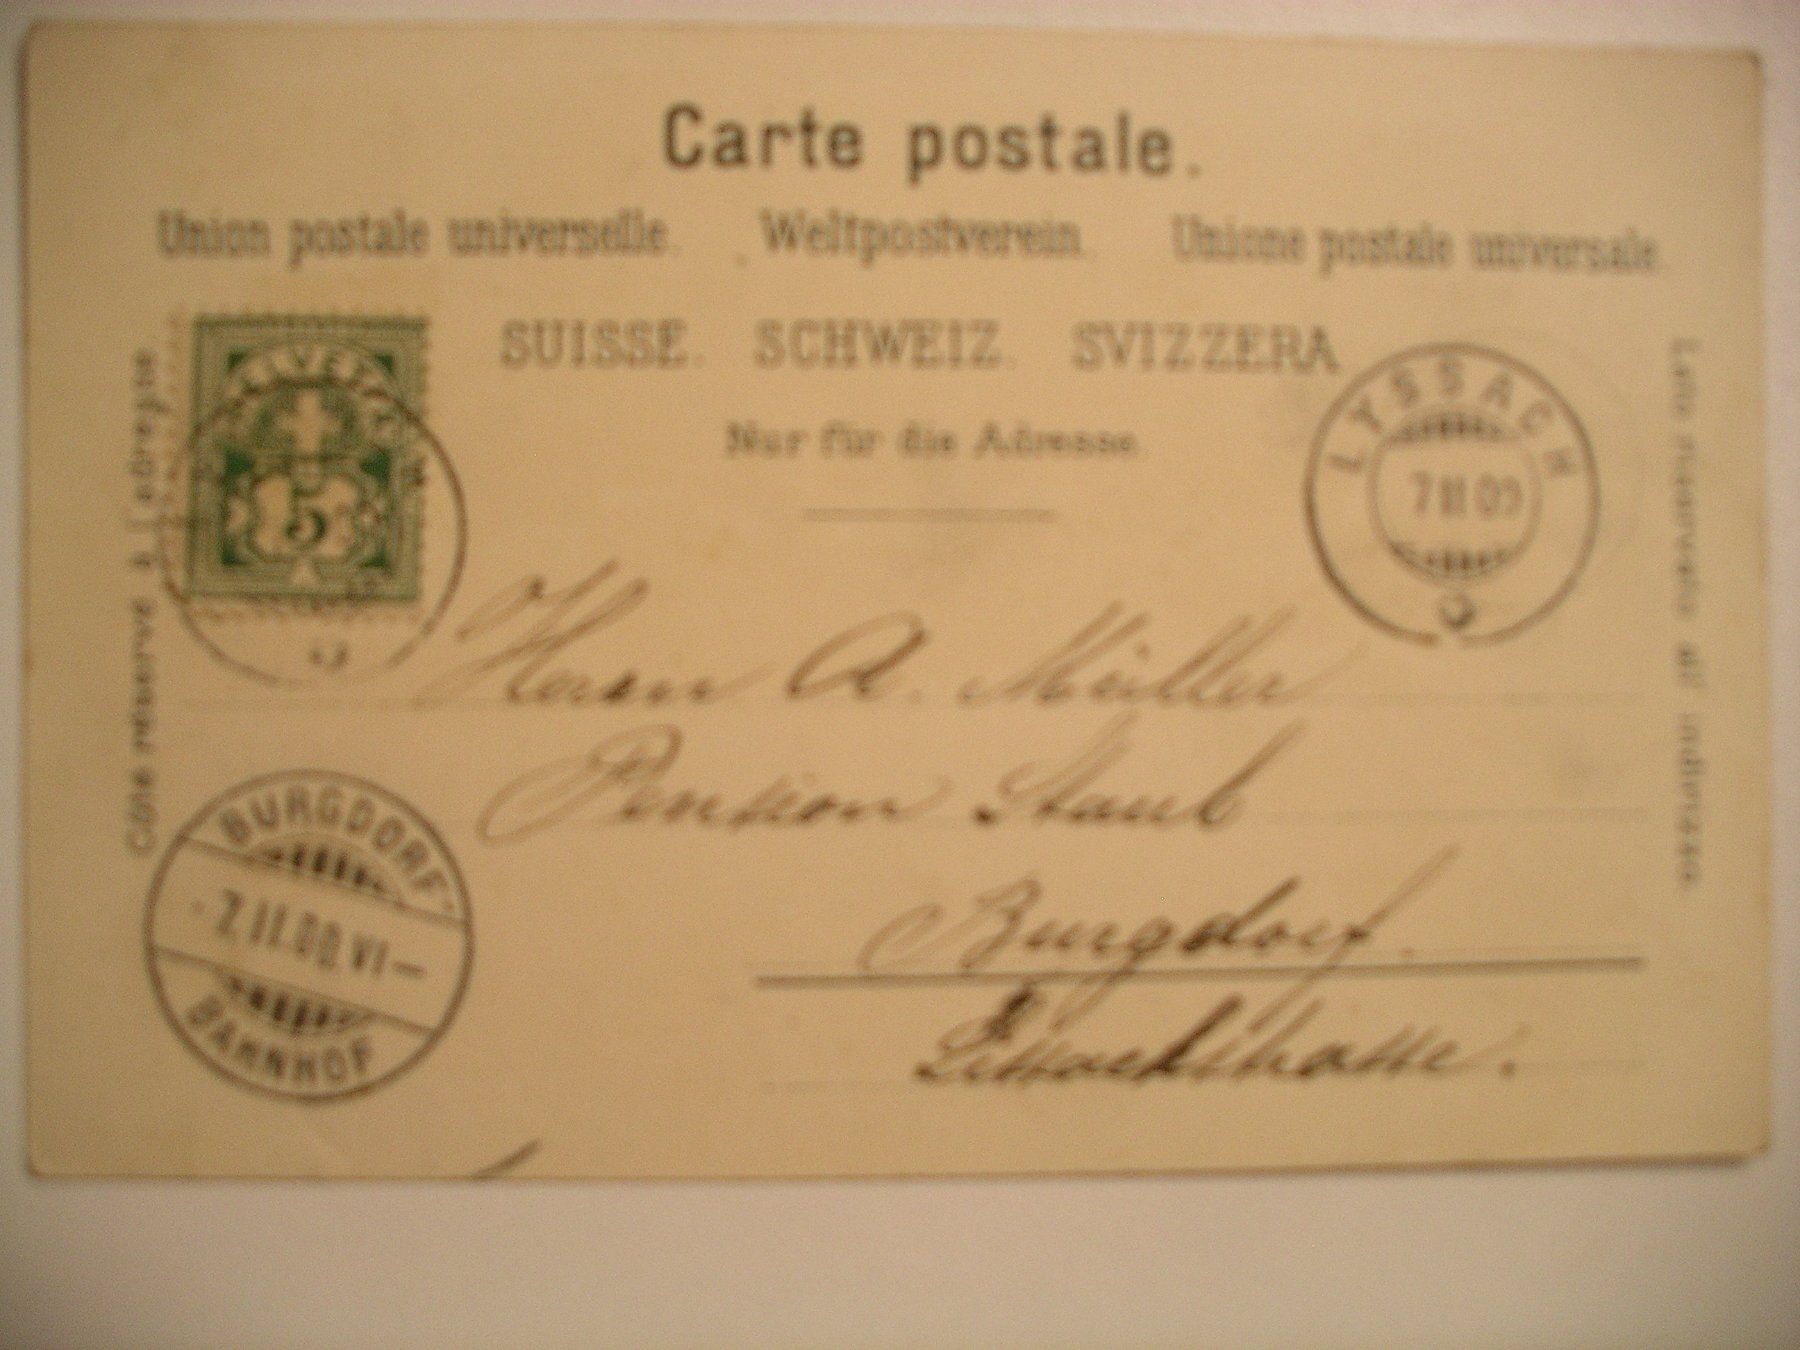 Carte postale.
Union postale universelle. Weltpostverein. Unione postale universale.
SUISSE. SCHWEIZ. SVIZZERA
Nur für die Adresse.
Côté réservé à l'adresse
Lato riservato all' indirizzo.
HELVETIA
5
LYSSACH
7 II 00
Herrn A. Müller
Pension Staub
Burgdorf.
Lissachstrasse.
BURGDORF
-7.II.00.VI-
BAHNHOF